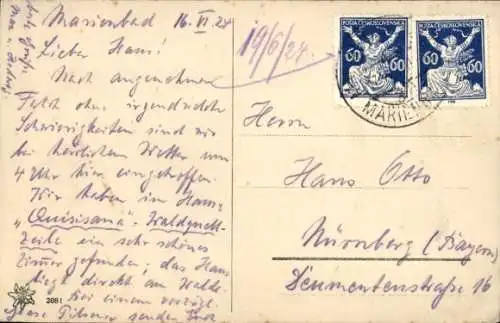 Marienbad 16. VI. 24
Lieber Hans!
Nach angenehmer
Fahrt ohne irgendwelche
Schwierigkeiten sind wir
bei herrlichem Wetter um
4 Uhr hier eingetroffen.
Wir haben im Haus
„Quisisana" - Waldquell-
zeile ein sehr schönes
Zimmer gefunden; das Haus
liegt direkt am Walde.
Bei einem vorzügl.
Glase Pilsner senden
19/6/24.
POŠTA ČESKOSLOVENSKÁ
60 60
POŠTA ČESKOSLOVENSKÁ
60 60
MARIE
Herrn
Hans Otto
Nürnberg (Bayern)
Deumentenstraße 16
2081